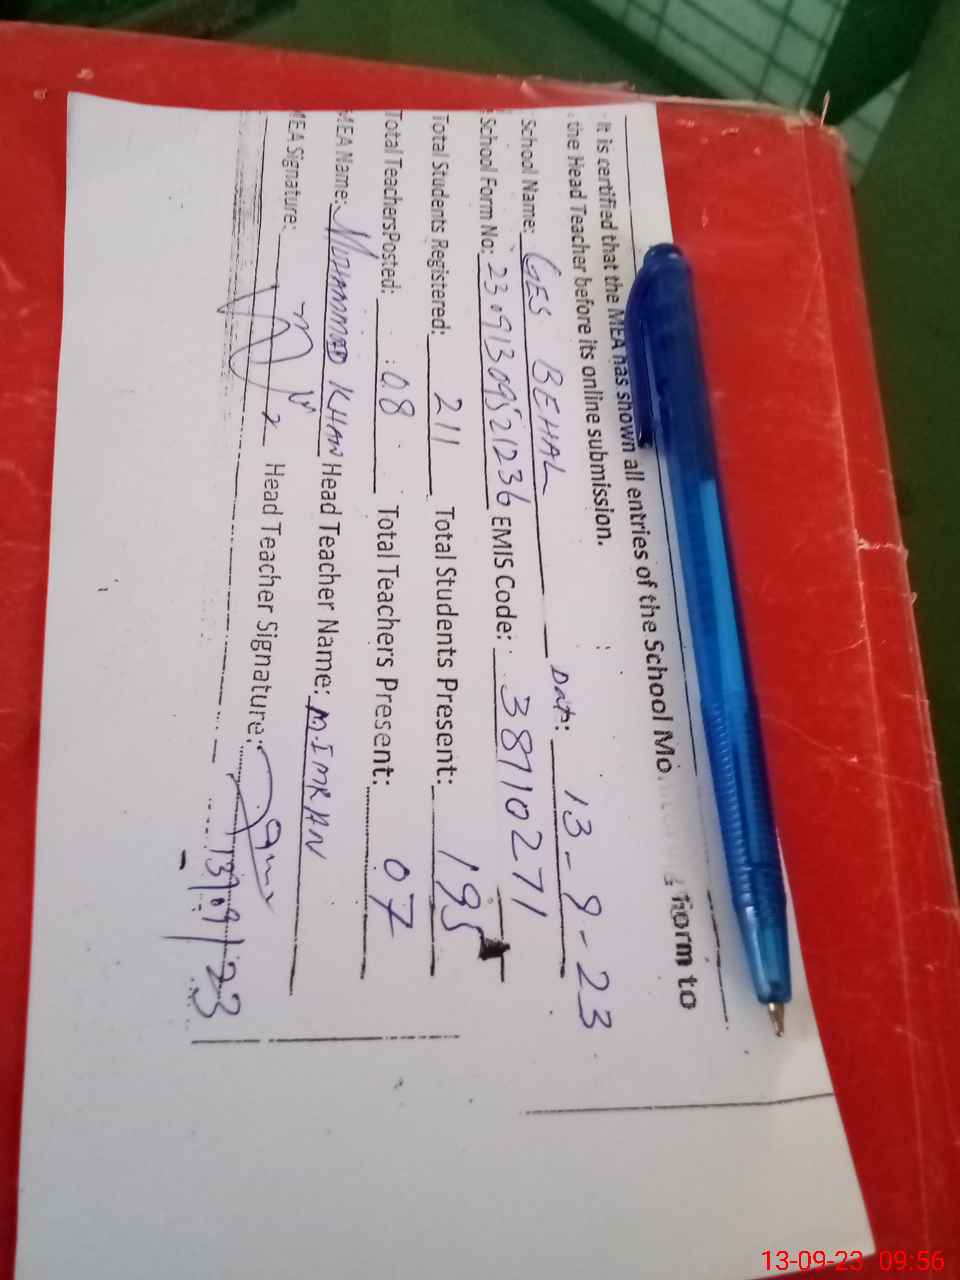 It is certified that the MEA has shown all entries of the School Monitoring Form to
the Head Teacher before its online submission.
School Name: GES BEHAL Date: 13-9-23
School Form No: 23091309521236 EMIS Code: 38710271
Total Students Registered: 211 Total Students Present: 195
Total Teachers Posted: 08 Total Teachers Present: 07
MEA Name: MOHAMMAD KHAN Head Teacher Name: M. IMRAN
MEA Signature: Head Teacher Signature:
13/9/23
13-09-23 09:56